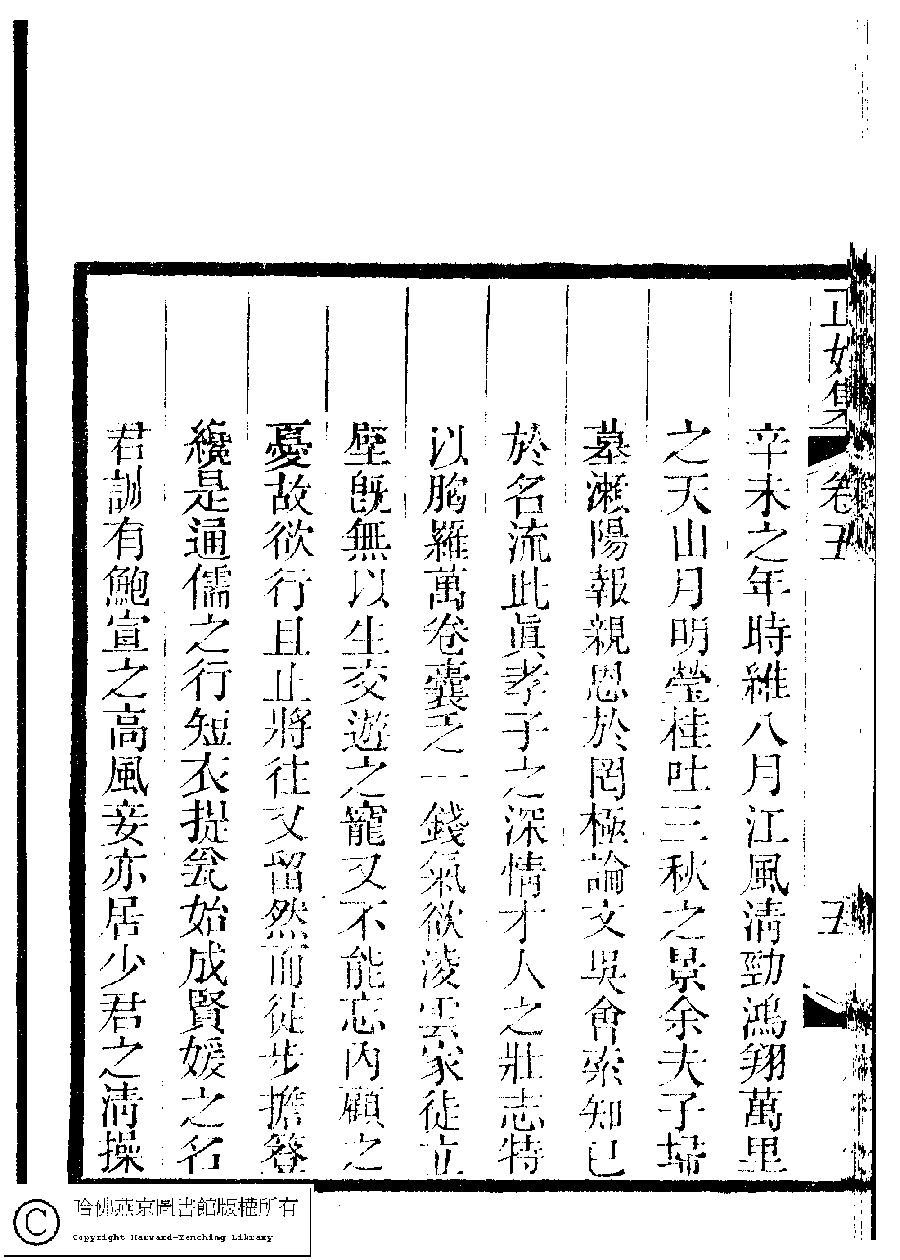 正始集 卷五 五
辛未之年時維八月江風淸勁鴻翔萬里
之天山月明瑩桂吐三秋之景余夫子埽
墓瀨陽報親恩於罔極論文吳會索知已
於名流此眞孝子之深情才人之壯志特
以胸羅萬卷囊乏一錢氣欲淩雲家徒立
壁旣無以生交遊之寵又不能忘內顧之
憂故欲行且止將往又留然而徒步擔簦
纔是通儒之行短衣提瓮始成賢媛之名
君訓有鮑宣之高風妾亦居少君之淸操
哈佛燕京圖書館版權所有
Copyright Harvard-Yenching Library